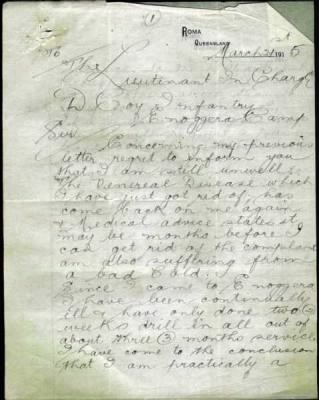 (1)
ROMA
QUEENSLAND
March 21st 1915
To
The Lieutenant In Charge
D Coy Infantry
Enoggera Camp
Sir
Concerning my previous
letter regret to inform you
that I am still unwell.
The Venereal Disease which
I have just got rid of, has
come back on me again
& Medical advice states it
may be months before I
can get rid of the complaint
am also suffering from
a bad Cold.
Since I came to Enoggera
I have been continually
ill & have only done two (2)
weeks drill in all out of
about three (3) months service
I have come to the conclusion
that I am practically a